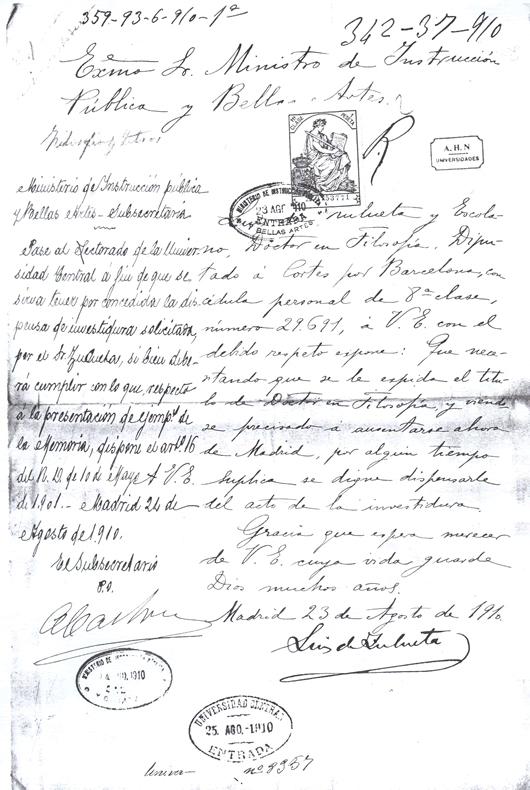 359-93-6-910-1ª
342-37-910
Exmo Sr. Ministro de Instrucción
Pública y Bellas Artes.
CLASE
A.H.N
UNIVERSIDADES
MINISTERIO DE INSTRUCCION
23 AGO 1910
ENTRADA
BELLAS ARTES
Zulueta y Escola-
no, Doctor en Filosofía, Dipu-
tado á Cortes por Barcelona, con
cédula personal de 8ª clase,
número 29.691, á V. E. con el
debido respeto expone: Que nece-
sitando que se le expida el títu-
lo de Doctor en Filosofía, y viendo
se precisado á ausentarse ahora
de Madrid, por algún tiempo
A V. E. suplica se digne dispensarle
del acto de la investidura.
Gracia que espera merecer
de V. E. cuya vida guarde
Dios muchos años.
Madrid 23 de Agosto de 1910.
Luis de Zulueta
Ministerio de Instrucción pública
y Bellas Artes - Subsecretaría
Pase al Rectorado de la Univer-
sidad Central á fin de que se
sirva tener por concedida la dis-
pensa de investidura solicitada,
por el Sr. Zulueta, si bien debe-
rá cumplir con lo que, respecto
á la presentación de ejempˢ de
la Memoria, dispone el artº 16
del R. D. de 10 de Mayo
de 1901. - Madrid 24 de
Agosto de 1910.
El Subsecretario
P.O.
1910
UNIVERSIDAD CENTRAL
25. AGO.-1910
ENTRADA
nº 8357